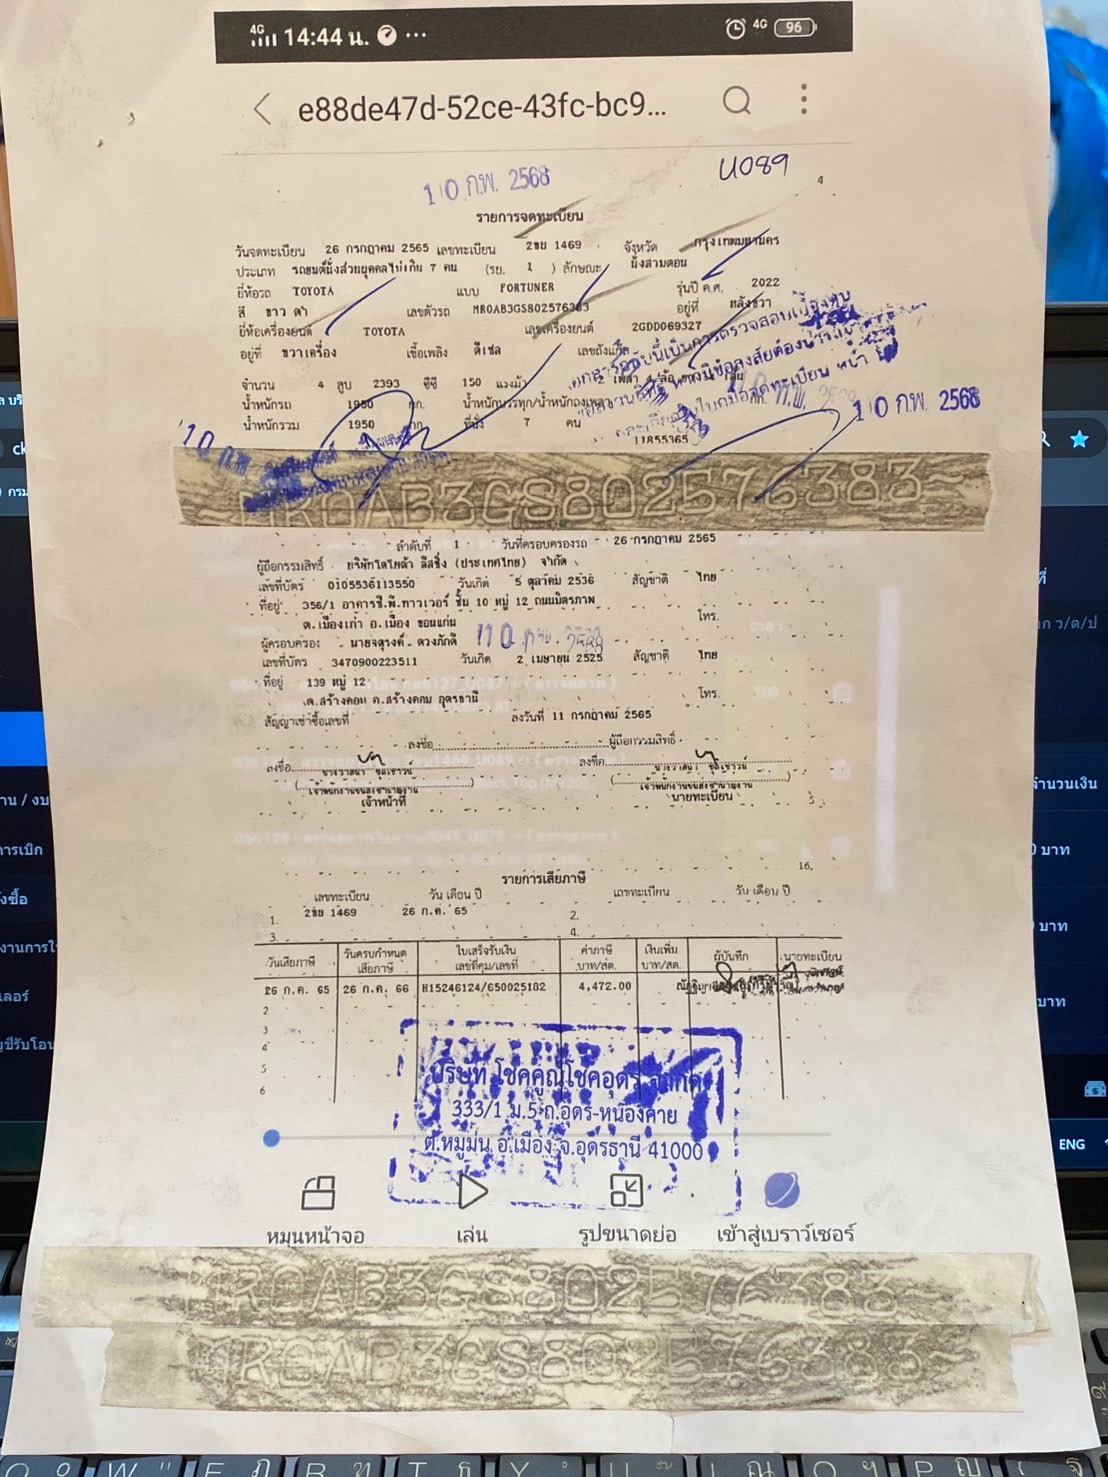 4G 14:44 น. ... 4G 96
e88de47d-52ce-43fc-bc9...
U089
10 ก.พ. 2568
4
รายการจดทะเบียน
วันจดทะเบียน 26 กรกฎาคม 2565 เลขทะเบียน 2ขย 1469 จังหวัด กรุงเทพมหานคร
ประเภท รถยนต์นั่งส่วนบุคคลไม่เกิน 7 คน (รย. 1 ) ลักษณะ นั่งสามตอน
ยี่ห้อรถ TOYOTA แบบ FORTUNER รุ่นปี ค.ศ. 2022
สี ขาว ดำ เลขตัวรถ MR0AB3GS802576383 อยู่ที่ หลังขวา
ยี่ห้อเครื่องยนต์ TOYOTA เลขเครื่องยนต์ 2GDD069327
อยู่ที่ ขวาเครื่อง เชื้อเพลิง ดีเซล เลขถังแก๊ส
จำนวน 4 สูบ 2393 ซีซี 150 แรงม้า 2 เพลา 4 ล้อ
น้ำหนักรถ 1950 กก. น้ำหนักบรรทุก/น้ำหนักลงเพลา กก.
น้ำหนักรวม 1950 กก. ที่นั่ง 7 คน
10 ก.พ. 2568
11855365
10 ก.พ.
MR0AB3GS802576383
ลำดับที่ 1 วันที่ครอบครองรถ 26 กรกฎาคม 2565
ผู้ถือกรรมสิทธิ์ บริษัทโตโยต้า ลีสซิ่ง (ประเทศไทย) จำกัด
เลขที่บัตร 0105536113550 วันเกิด 5 ตุลาคม 2536 สัญชาติ ไทย
ที่อยู่ 356/1 อาคารซี.พี.ทาวเวอร์ ชั้น 10 หมู่ 12 ถนนมิตรภาพ
ต.เมืองเก่า อ.เมือง ขอนแก่น โทร.
ผู้ครอบครอง นายจตุรงค์ ดวงภักดี
เลขที่บัตร 3470900223511 วันเกิด 2 เมษายน 2525 สัญชาติ ไทย
ที่อยู่ 139 หมู่ 12
ต.สร้างคอม อ.สร้างคอม อุดรธานี โทร.
สัญญาเช่าซื้อเลขที่ ลงวันที่ 11 กรกฎาคม 2565
ลงชื่อ ผู้ถือกรรมสิทธิ์
ลงชื่อ ลงชื่อ
เจ้าหน้าที่ นายทะเบียน
5
16
รายการเสียภาษี
เลขทะเบียน วัน เดือน ปี เลขทะเบียน วัน เดือน ปี
1. 2ขย 1469 26 ก.ค. 65 2.
3. 4.
วันเสียภาษี วันครบกำหนดเสียภาษี ใบเสร็จรับเงิน เลขที่คุม/เลขที่ ค่าภาษี บาท/สต. เงินเพิ่ม บาท/สต. ผู้บันทึก นายทะเบียน
26 ก.ค. 65 26 ก.ค. 66 H15246124/650025182 4,472.00
2
3
4
5
6
บริษัท โชคคูณโชคอุดร จำกัด
333/1 ม.5 ถ.อุดร-หนองคาย
ต.หมูม่น อ.เมือง จ.อุดรธานี 41000
หมุนหน้าจอ เล่น รูปขนาดย่อ เข้าสู่เบราว์เซอร์
MR0AB3GS802576383
MR0AB3GS802576383
ENG